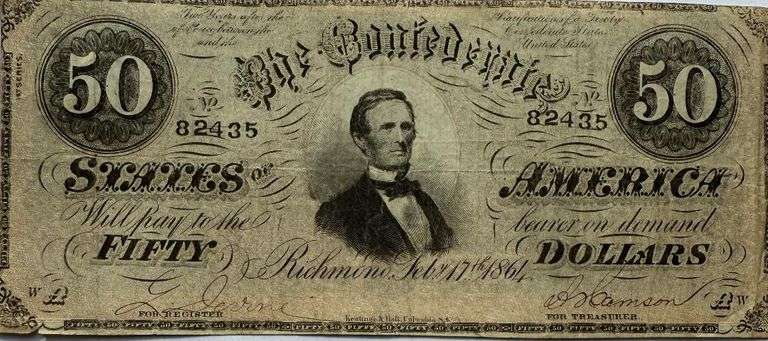 1ST SERIES.
Two Years after the Ratification of a Treaty
of Peace between the Confederate States
and the United States
50 The Confederate 50
No 82435 No 82435
STATES OF AMERICA
Will pay to the bearer on demand
FIFTY DOLLARS
Richmond, Feby 17th 1864
W W
FOR REGISTER Keatinge & Ball, Columbia, S.C. FOR TREASURER
FIFTY 50 FIFTY 50 FIFTY 50